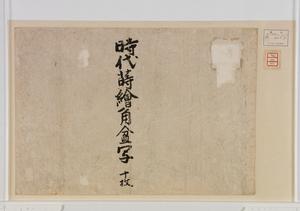 時代蒔繪角盆写
十枚